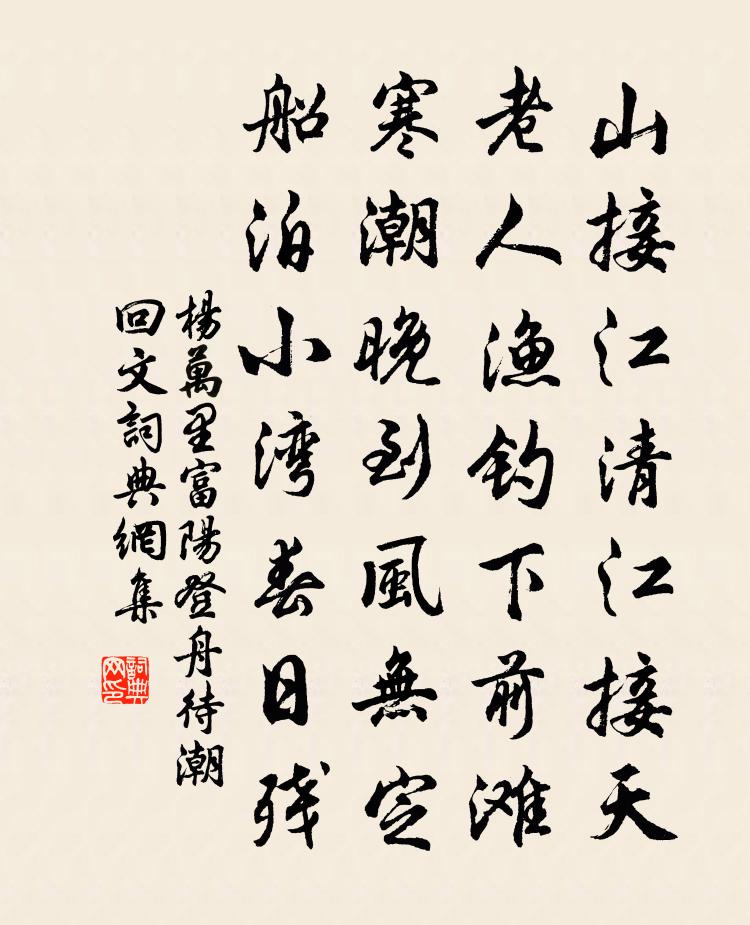 山接江清江接天
老人漁钓下前滩
寒潮晚到風無定
船泊小湾春日残
楊萬里富陽登舟待潮
回文詞典網集
詞典
网印